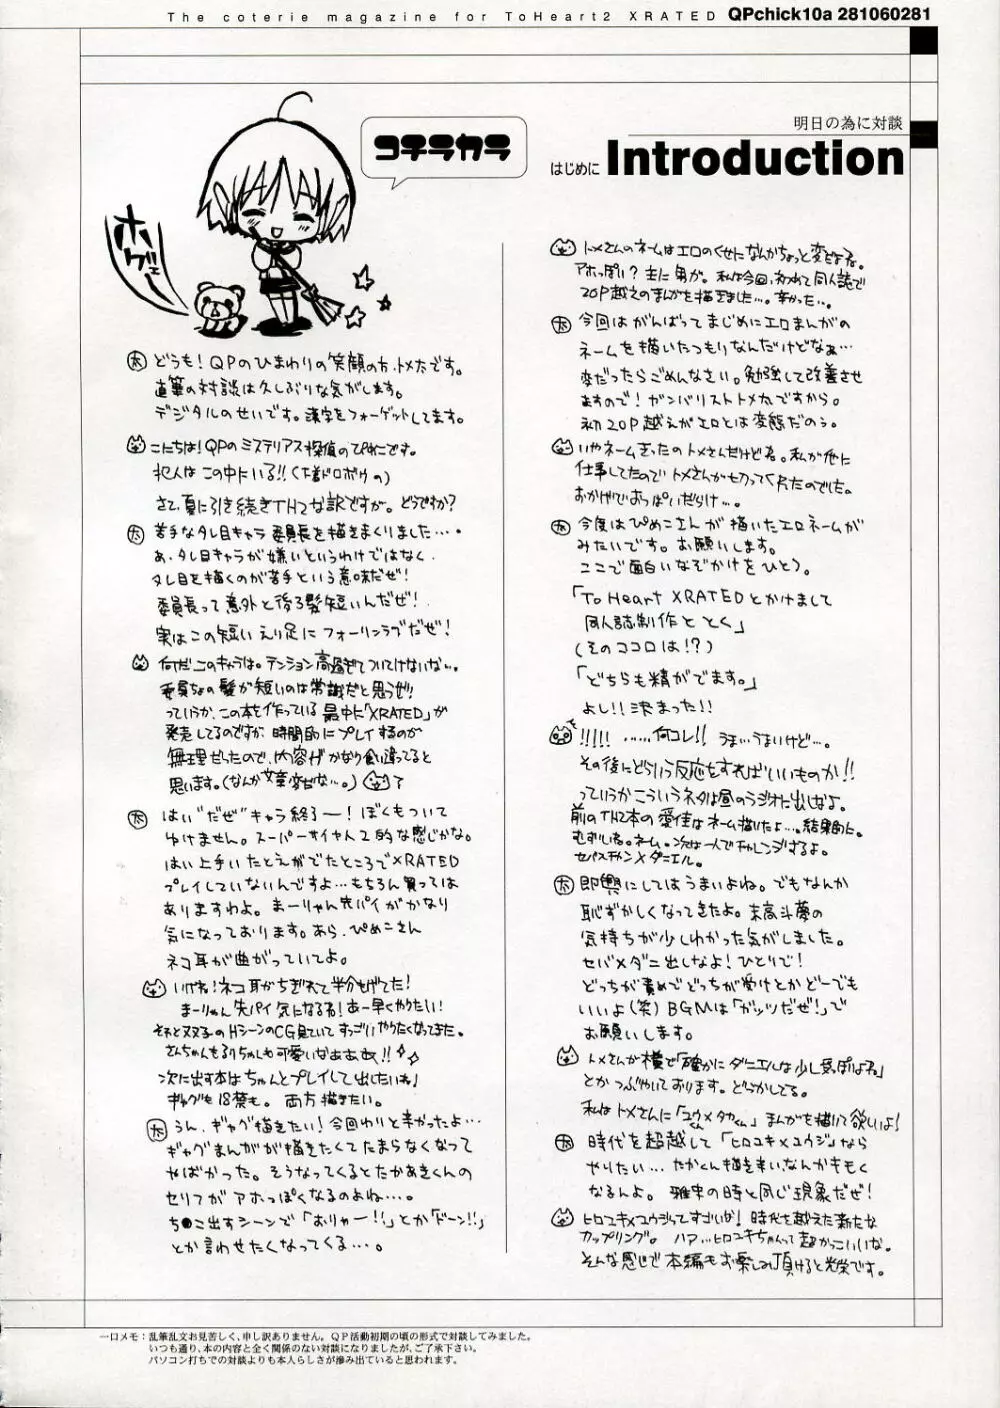 The coterie magazine for ToHeart2 XRATED QPchick10a 281060281
明日の為に対談
はじめに Introduction
コチラカラ
ホゲェー
どうも！QPのひまわりの笑顔の方、トメ太です。
直筆の対談は久しぶりな気がします。
デジタルのせいです。漢字をフォーゲットしてます。
こにちは！QPのミステリアス探偵のぴめこです。
犯人はこの中にいる!!(下着ドロボウの)
さて、夏に引き続きTH2な訳ですが。どうですか？
苦手なタレ目キャラ委員長を描きまくりました・・・・
あ、タレ目キャラが嫌いというわけではなく、
タレ目を描くのが苦手という意味だぜ！
委員長って意外と後ろ髪短いんだぜ！
実はこの短いえり足にフォーリンラブだぜ！
何だこのキャラは。テンション高過ぎてついてけないな…。
委員ちょの髪が短いのは常識だと思うぜ!!
っていうか、この本を作っている最中に「XRATED」が
発売してるのですが、時間的にプレイするのが
無理だったので、内容がかなり食い違ってると
思います。(なんか文章変だな…。)？
はい“だぜ”キャラ終了ー！ぼくもついて
ゆけません。スーパーサイヤ人2的な感じかな。
はい上手いたとえがでたところでXRATED
プレイしていないんですよ…もちろん買っては
ありますわよ。まーりゃん先パイがかなり
気になっております。あら、ぴめこさん
ネコ耳が曲がっていてよ。
いけね！ネコ耳がちぎれて半分もげてた！
まーりゃん先パイ気になるね！あー早くやりたい！
それと双子のHシーンのCG見ていてすっごいやりたくなってきた。
さんちゃんもるりちゃんも可愛いなぁぁぁぁ!!
次に出す本はちゃんとプレイして出したいね」
ギャグも18禁も。両方描きたい。
うん、ギャグ描きたい！今回わりと辛かったよ…
ギャグまんがが描きたくてたまらなくなって
やばかった。そうなってくるとたかあきくんの
セリフがアホっぽくなるのよね…。
ち●こ出すシーンで「おりゃー!!」とか「ドーン!!」
とか言わせたくなってくる…。
トメさんのネームはエロのくせになんかちょっと変だよね。
アホっぽい？主に男が。私は今回、初めて同人誌で
20P越えのまんがを描きました…。辛かった…。
今回はがんばってまじめにエロまんがの
ネームを描いたつもりなんだけどなぁ…
変だったらごめんなさい。勉強して改善させ
ますので！ガンバリストトメ太ですから。
初20P越えがエロとは変態だのぅ。
いやネームきったのトメさんだけどね。私が他に
仕事してたのでトメさんが切ってくれたのでした。
おかげでおっぱいだらけ…。
今度はぴめこさんが描いたエロネームが
みたいです。お願いします。
ここで面白いなぞかけをひとつ。
「To Heart XRATEDとかけまして
同人誌制作ととく」
(そのココロは!?)
「どちらも精がでます。」
よし!!決まった!!
!!!!! ……何コレ!! うま…うまいけど…。
その後にどういう反応をすればいいものか!!
っていうかこういうネタは昼のラジオに出しなよ。
前のTH2本の愛佳はネーム描いたよ…。結果的に。
むずいね。ネーム。次は一人でチャレンジするよ。
セバスチャン×ダニエル。
即興にしてはうまいよね。でもなんか
恥ずかしくなってきたよ。末高斗夢の
気持ちが少しわかった気がしました。
セバ×ダニ出しなよ！ひとりで！
どっちが責めでどっちが受けとかどーでも
いいよ(笑)BGMは「ガッツだぜ！」で
お願いします。
トメさんが横で「確かにダニエルは少し受っぽいよね」
とかつぶやいております。どうかしてる。
私はトメさんに「ユウ×タカくん」まんがを描いて欲しいよ！
時代を超越して「ヒロユキ×ユウジ」なら
やりたい…たかくん描き辛い、なんかキモく
なるんよ。雅史の時と同じ現象だぜ！
ヒロユキ×ユウジってすごいな！時代を越えた新たな
カップリング。ハァ…ヒロユキちゃんって超かっこいいな。
そんな感じで本編もお楽しみ頂けると光栄です。
一口メモ：乱筆乱文お見苦しく、申し訳ありません。QP活動初期の頃の形式で対談してみました。
いつも通り、本の内容と全く関係のない対談になりましたが、ご了承下さい。
パソコン打ちでの対談よりも本人らしさが滲み出ていると思われます。